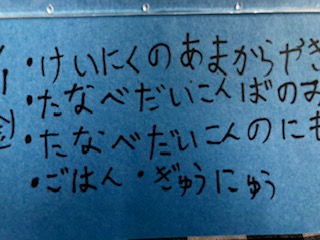 ・けいにくのあまからやき
・たなべだいこんばのみ
・たなべだいこんのにも
・ごはん・ぎゅうにゅう
金